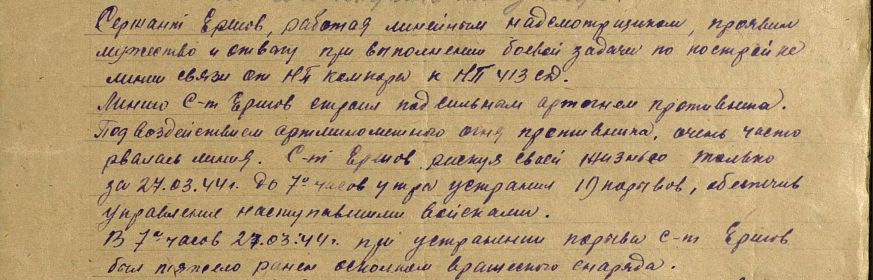 Сержант Ершов, работая линейным надсмотрщиком, проявил
мужество и отвагу при выполнении боевой задачи по постройке
линии связи от НП комкора к НП 413 сд.
Линию С-т Ершов строил под сильным артогнем противника.
Под воздействием артминометного огня противника, очень часто
рвалась линия. С-т Ершов рискуя своей жизнью только
за 27.03.44г. до 7º часов утра устранил 19 порывов, обеспечив
управление наступавшими войсками.
В 7º часов 27.03.44г. при устранении порыва С-т Ершов
был тяжело ранен осколком вражеского снаряда.